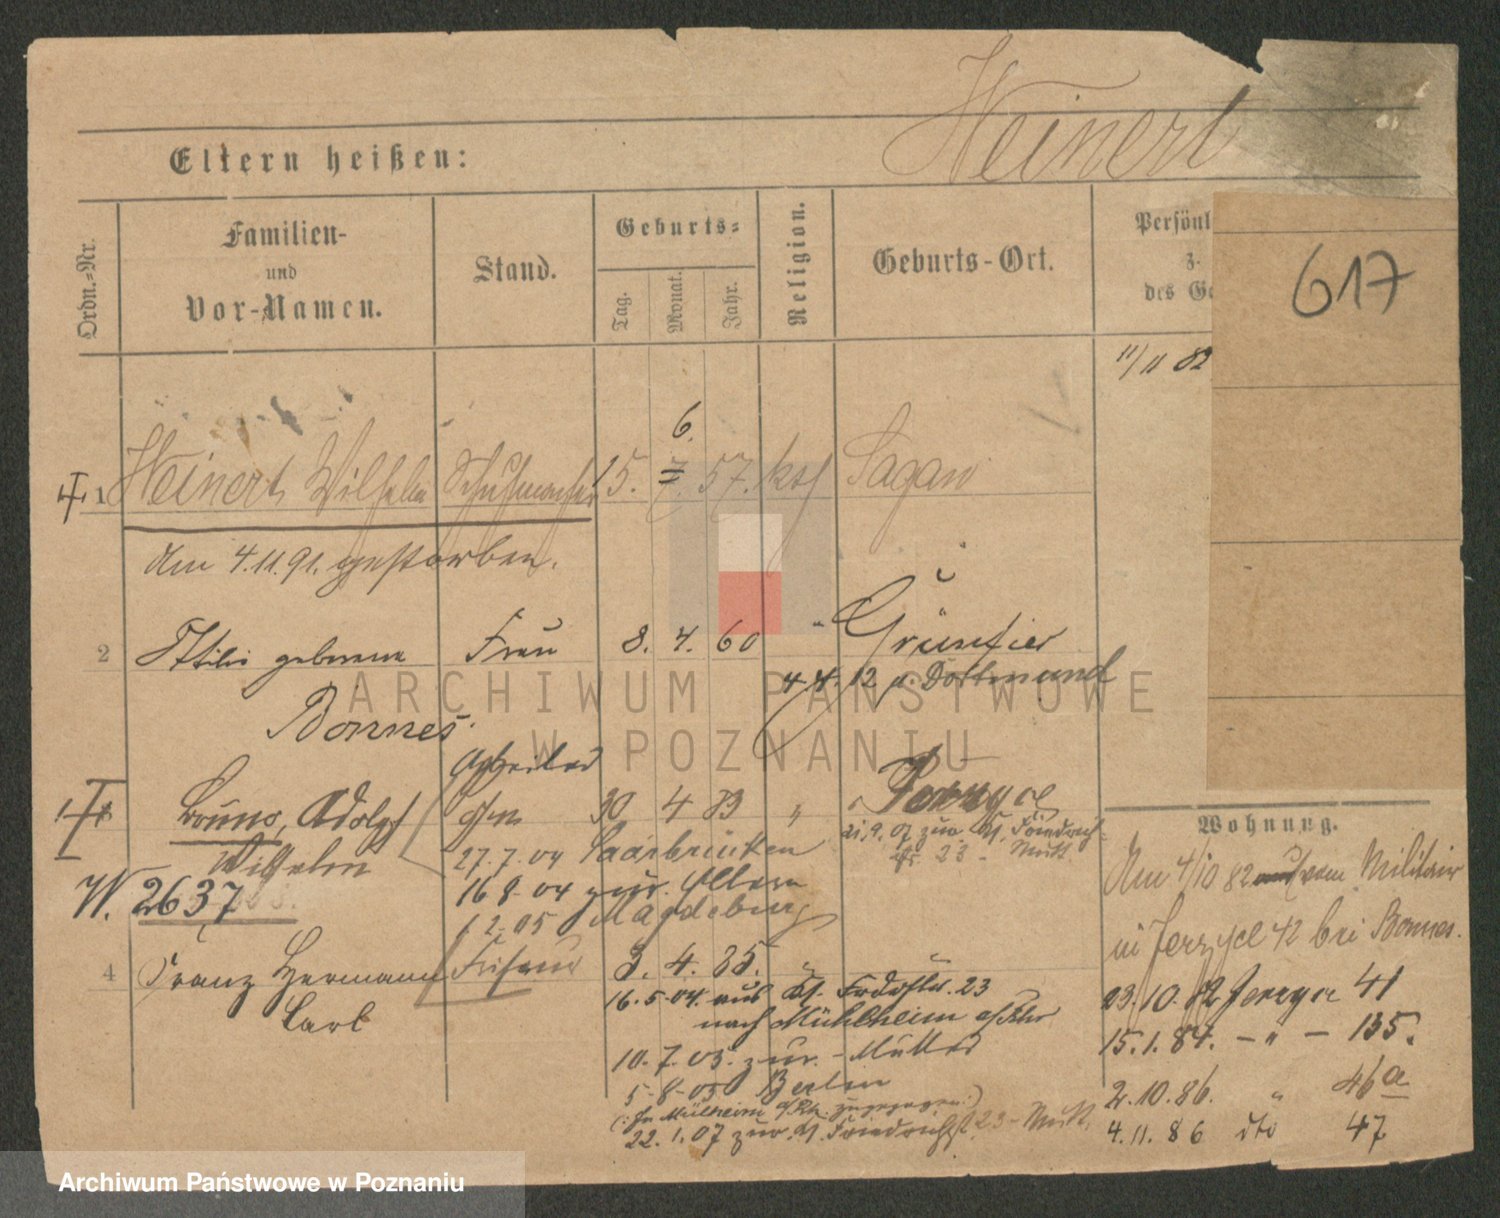 Weinert
Eltern heißen:
Ordn.-Nr.
Familien-
und
Vor-Namen.
Stand.
Geburts-
Tag.
Monat.
Jahr.
Religion.
Geburts-Ort.
Persönl
z.
des Ge
617
11/11 82
6.
1 Weinert, Wilhelm Schuhmacher 15. 57. kath Sagan
Am 4.11.91. gestorben.
2 geborene Frau 8. 4. 60 "
4.4.12 n. Dortmund
Bonnes.
Arbeiter
Bruno, Adolf 30 4 83 "
Wilhelm
zur Kl. Friedrich
23 - Mutt
27.7.04 Saarbrücken
16 8-04 zur. Eltern
W. 2637
1 2-05 Magdeburg
4 Franz Hermann Friseur 3. 4. 85. "
Carl
16.5.04. aus Kl. 23
nach Mühlheim a/Rhr
10.7.05. zur. - Mutter
5-8-05 Berlin
(: In Mülheim a/Rh. zugezogen:)
22.1.07 zur. Kl. Friedrichst 23 - Mutt.
Wohnung.
Am 4/10 82 vom Militair
in Jerzyce 42 bei Bonnes.
23.10.82 Jerzyce 41
15.1.84. - " - 135.
2.10.86. " 46a
4.11.86 dto 47
ARCHIWUM PAŃSTWOWE
W POZNANIU
Archiwum Państwowe w Poznaniu